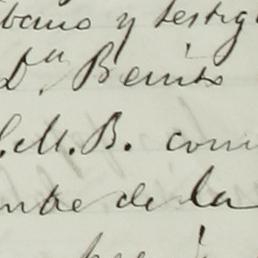 bano y testig
Dn. Benito
S.M.B. com
ntre de la